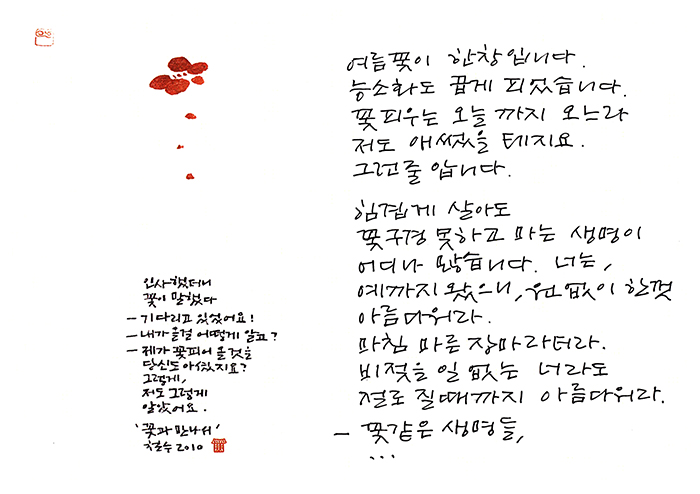 인사했더니
꽃이 말했다
- 기다리고 있었어요!
- 내가 올걸 어떻게 알고?
- 제가 꽃피어 올 것을
당신도 아셨지요?
그렇게,
저도 그렇게
알았어요.
'꽃과 만나서'
철수 2010
여름꽃이 한창입니다.
능소화도 곱게 피었습니다.
꽃피우는 오늘까지 오느라
저도 애썼을 테지요.
그런줄 압니다.
힘겹게 살아도
꽃구경 못하고 마는 생명이
어디나 많습니다. 너는,
예까지 왔으니, 원 없이 한껏
아름다워라.
마침 마른 장마라더라.
비젖을 일 없는 너라도
절로 질때까지 아름다워라.
- 꽃같은 생명들,
...